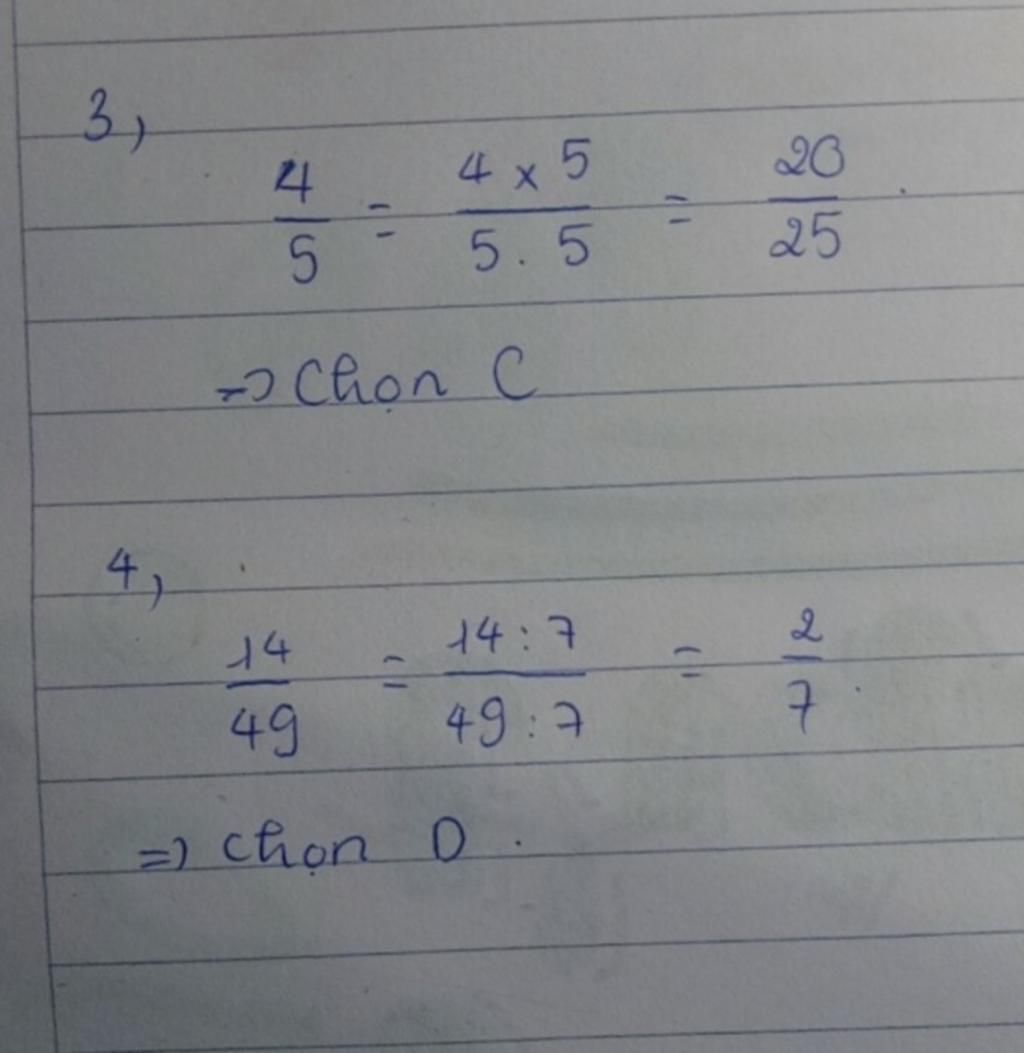 3,
4/5 = 4 x 5 / 5 . 5 = 20/25 .
-> Chọn C
4,
14/49 = 14 : 7 / 49 : 7 = 2/7 .
=> chọn D .